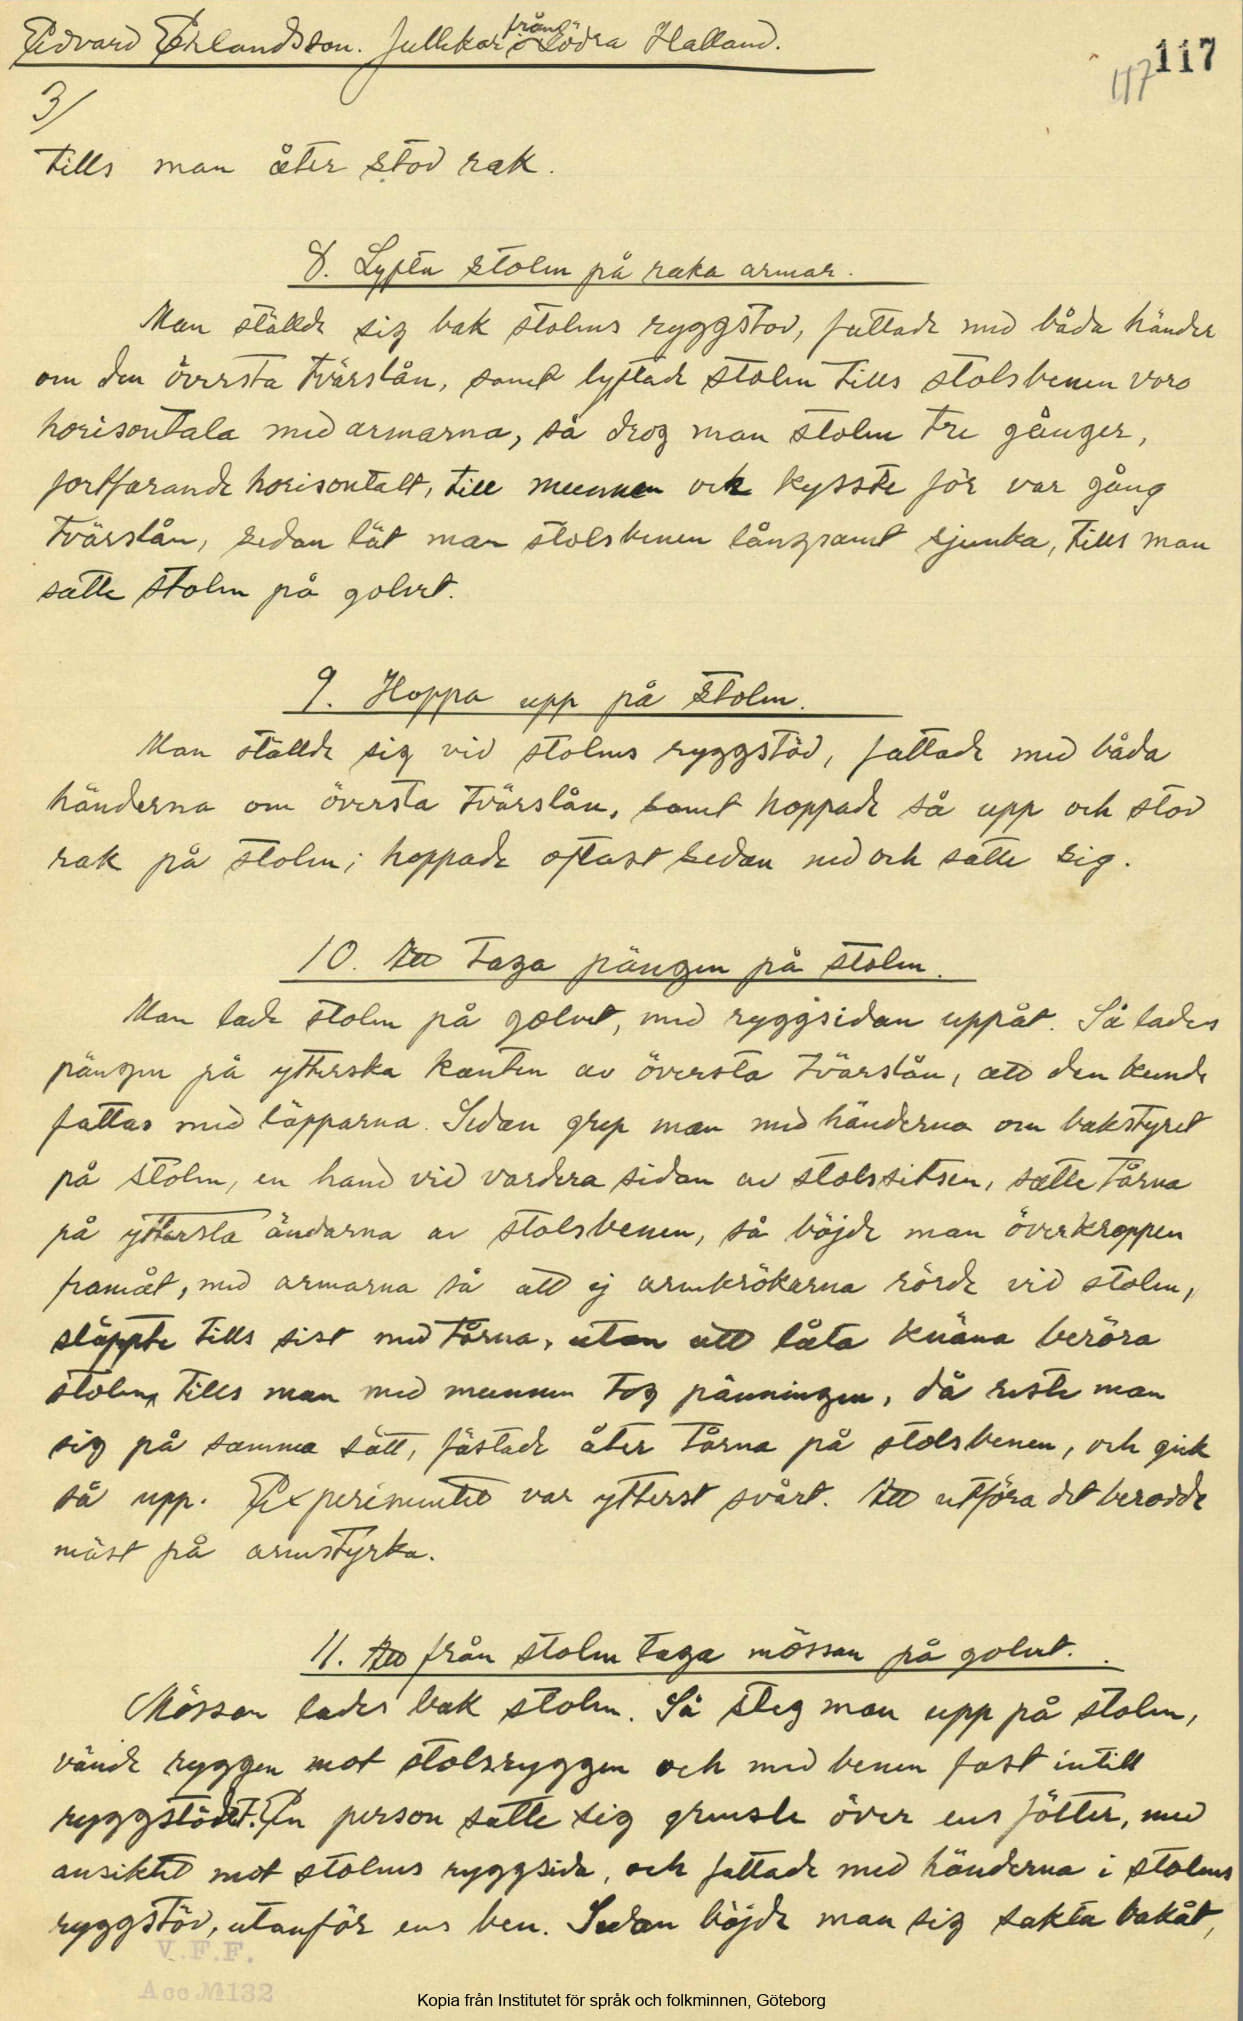 Edvard Erlandsson. Jullekar från Södra Halland.
117
117
3/
tills man åter stod rak.
8. Lyfta stolen på raka armar.
Man ställde sig bak stolens ryggstöd, fattade med båda händer
om den översta tvärslån, samt lyftade stolen tills stolsbenen voro
horisontala med armarna, så drog man stolen tre gånger,
fortfarande horisontalt, till munnen och kysste för var gång
tvärslån, sedan lät man stolsbenen långsamt sjunka, tills man
satte stolen på golvet.
9. Hoppa upp på stolen.
Man ställde sig vid stolens ryggstöd, fattade med båda
händerna om översta tvärslån, samt hoppade så upp och stod
rak på stolen; hoppade oftast sedan ned och satte sig.
10. Att taga pängen på stolen.
Man lade stolen på golvet, med ryggsidan uppåt. Så lades
pängen på ytterska kanten av översta tvärslån, att den kunde
fattas med läpparna. Sedan grep man med händerna om bakstyret
på stolen, en hand vid vardera sidan av stolssitsen, satte tårna
på yttersta ändarna av stolsbenen, så böjde man överkroppen
framåt, med armarna så att ej armkrökarna rörde vid stolen,
släppte tills sist med tårna, utan att låta knäna beröra
stolen, tills man med munnen tog pänningen, då reste man
sig på samma sätt, fästade åter tårna på stolsbenen, och gick
så upp. Experimentet var ytterst svårt. Att utföra det berodde
mäst på armstyrka.
11. Att från stolen taga mössan på golvet.
Mössan lades bak stolen. Så steg man upp på stolen,
vände ryggen mot stolsryggen och med benen fast intill
ryggstödet. En person satte sig grensle över ens fötter, med
ansiktet mot stolens ryggsida, och fattade med händerna i stolens
ryggstöd, utanför ens ben. Sedan böjde man sig sakta bakåt,
V.F.F.
Acc № 132
Kopia från Institutet för språk och folkminnen, Göteborg